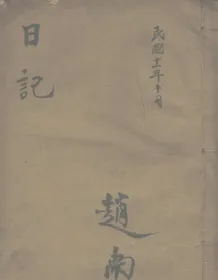 日記
民國十二年十月
趙南